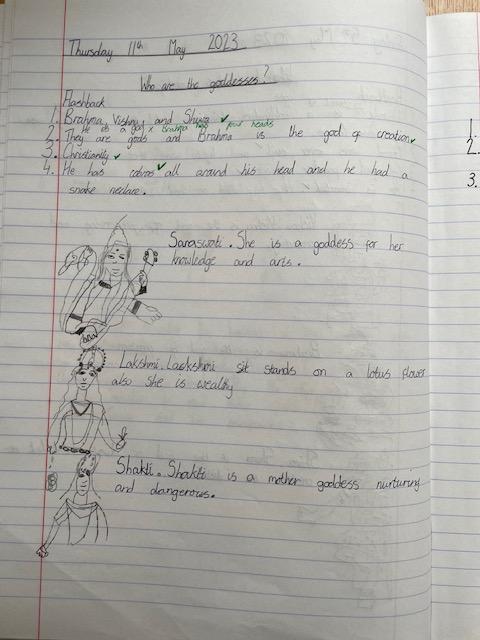 Thursday 11th May 2023
Who are the goddesses?
Flashback
1. Brahma, Vishnu, and Shiva
He is a god x Brahma has four heads
2. They are gods and Brahma is the god of creation
3. Christianity
4. He has cobras all around his head and he had a
snake neclace.
Saraswati. She is a goddess for her
knowledge and arts.
Lakshmi. Lackshmi sit stands on a lotus flower
also She is wealthy
Shakti. Shakti is a mother goddess nurturing
and dangerous.
1.
2.
3.